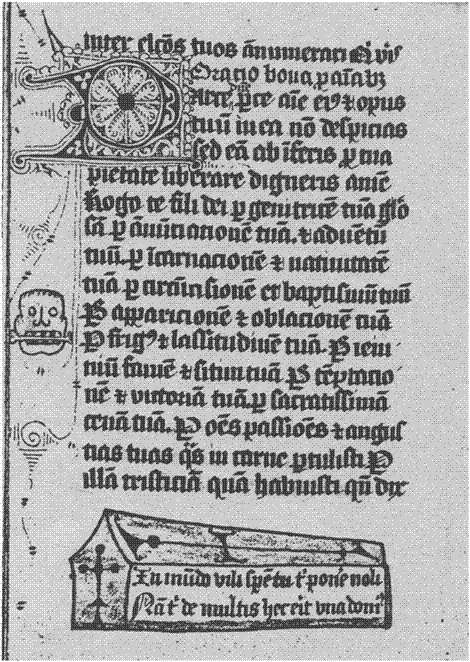 Inter elcōs tuos ānumerari Q vis
Oracio bona p aīabz
p̄re aīe ei⁹ ⁊ opus
tuū in ea nō despicias
sed eā ab īferis ꝑ tua
pietate liberare digneris amē
Rogo te fili dei ꝑ genitricē tuā glō
sā ꝑ ānūtiationē tuā. ⁊ aduētū
tuū. ꝑ īcarnacionē ⁊ natiuitatē
tuā ꝑ circūcisionē et baptismū tuū
Ꝑ apparicionē ⁊ oblacionē tuā
Ꝑ frig⁹ ⁊ lassitudinē tuā. Ꝑ ieiu
niū famē ⁊ sitim tuā Ꝑ tēptacio
nē ⁊ victoriā tuā. ꝑ sacratissimā
tuā. Ꝑ oēs passiōes ⁊ angus
tias tuas q̄s in carne ꝑtulisti Ꝑ
illā tristiciā quā habuisti qn̄ dix
In mūdo vili spē tu t' pone noli
Nā t' de multis hec erit vna dom'